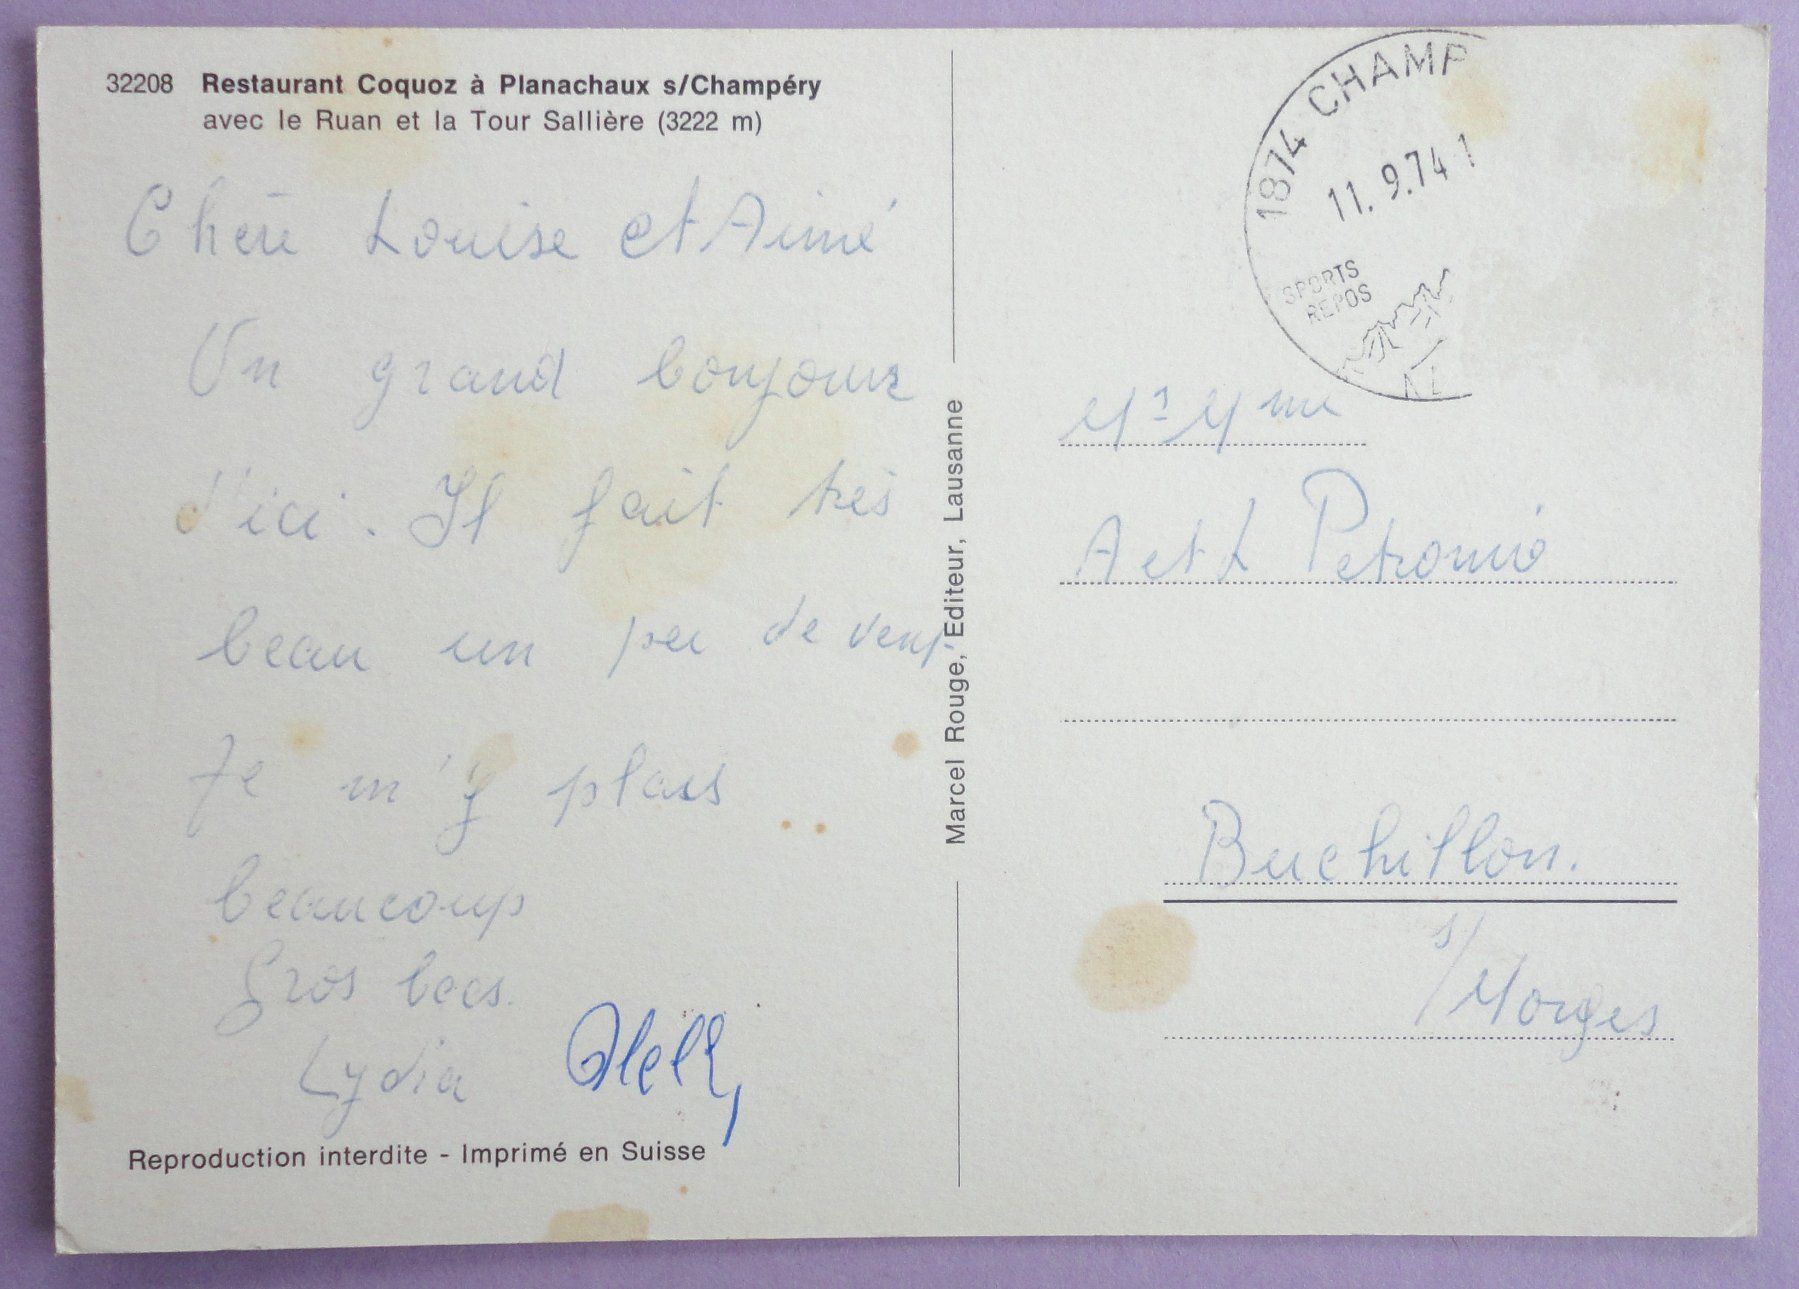 32208 Restaurant Coquoz à Planachaux s/Champéry
avec le Ruan et la Tour Sallière (3222 m)
Chère Louise et Aimé
Un grand bonjour
d'ici. Il fait très
beau un peu de vent.
Je m'y plais
beaucoup
Gros becs.
Lydia
Reproduction interdite - Imprimé en Suisse
Marcel Rouge, Editeur, Lausanne
1874 CHAMP
11. 9.74 1
SPORTS
REPOS
Mr Mme
A et L
Buchillon.
s/Morges